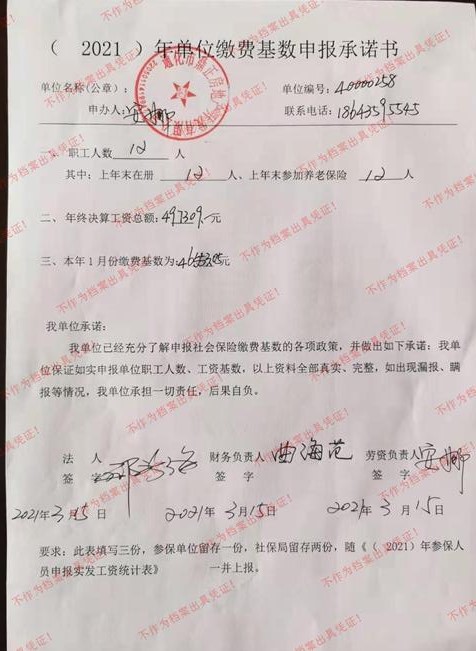 （ 2021 ）年单位缴费基数申报承诺书
单位名称(公章)： 单位编号: 40000258
申办人: 安娜 联系电话: 18643595545
一、职工人数 12 人
其中：上年末在册 12 人、上年末参加养老保险 12 人
二、年终决算工资总额: 元
三、本年1月份缴费基数为: 元
我单位承诺：
我单位已经充分了解申报社会保险缴费基数的各项政策，并做出如下承诺：我单
位保证如实申报单位职工人数、工资基数，以上资料全部真实、完整，如出现漏报、瞒
报等情况，我单位承担一切责任，后果自负。
法 人 财务负责人 曲海范 劳资负责人 安娜
签 字 签 字 签 字
2021年3月15日 2021年3月15日 2021年3月15日
要求：此表填写三份，参保单位留存一份，社保局留存两份，随《（ 2021）年参保人
员申报实发工资统计表》 一并上报。
不作为档案出具凭证！